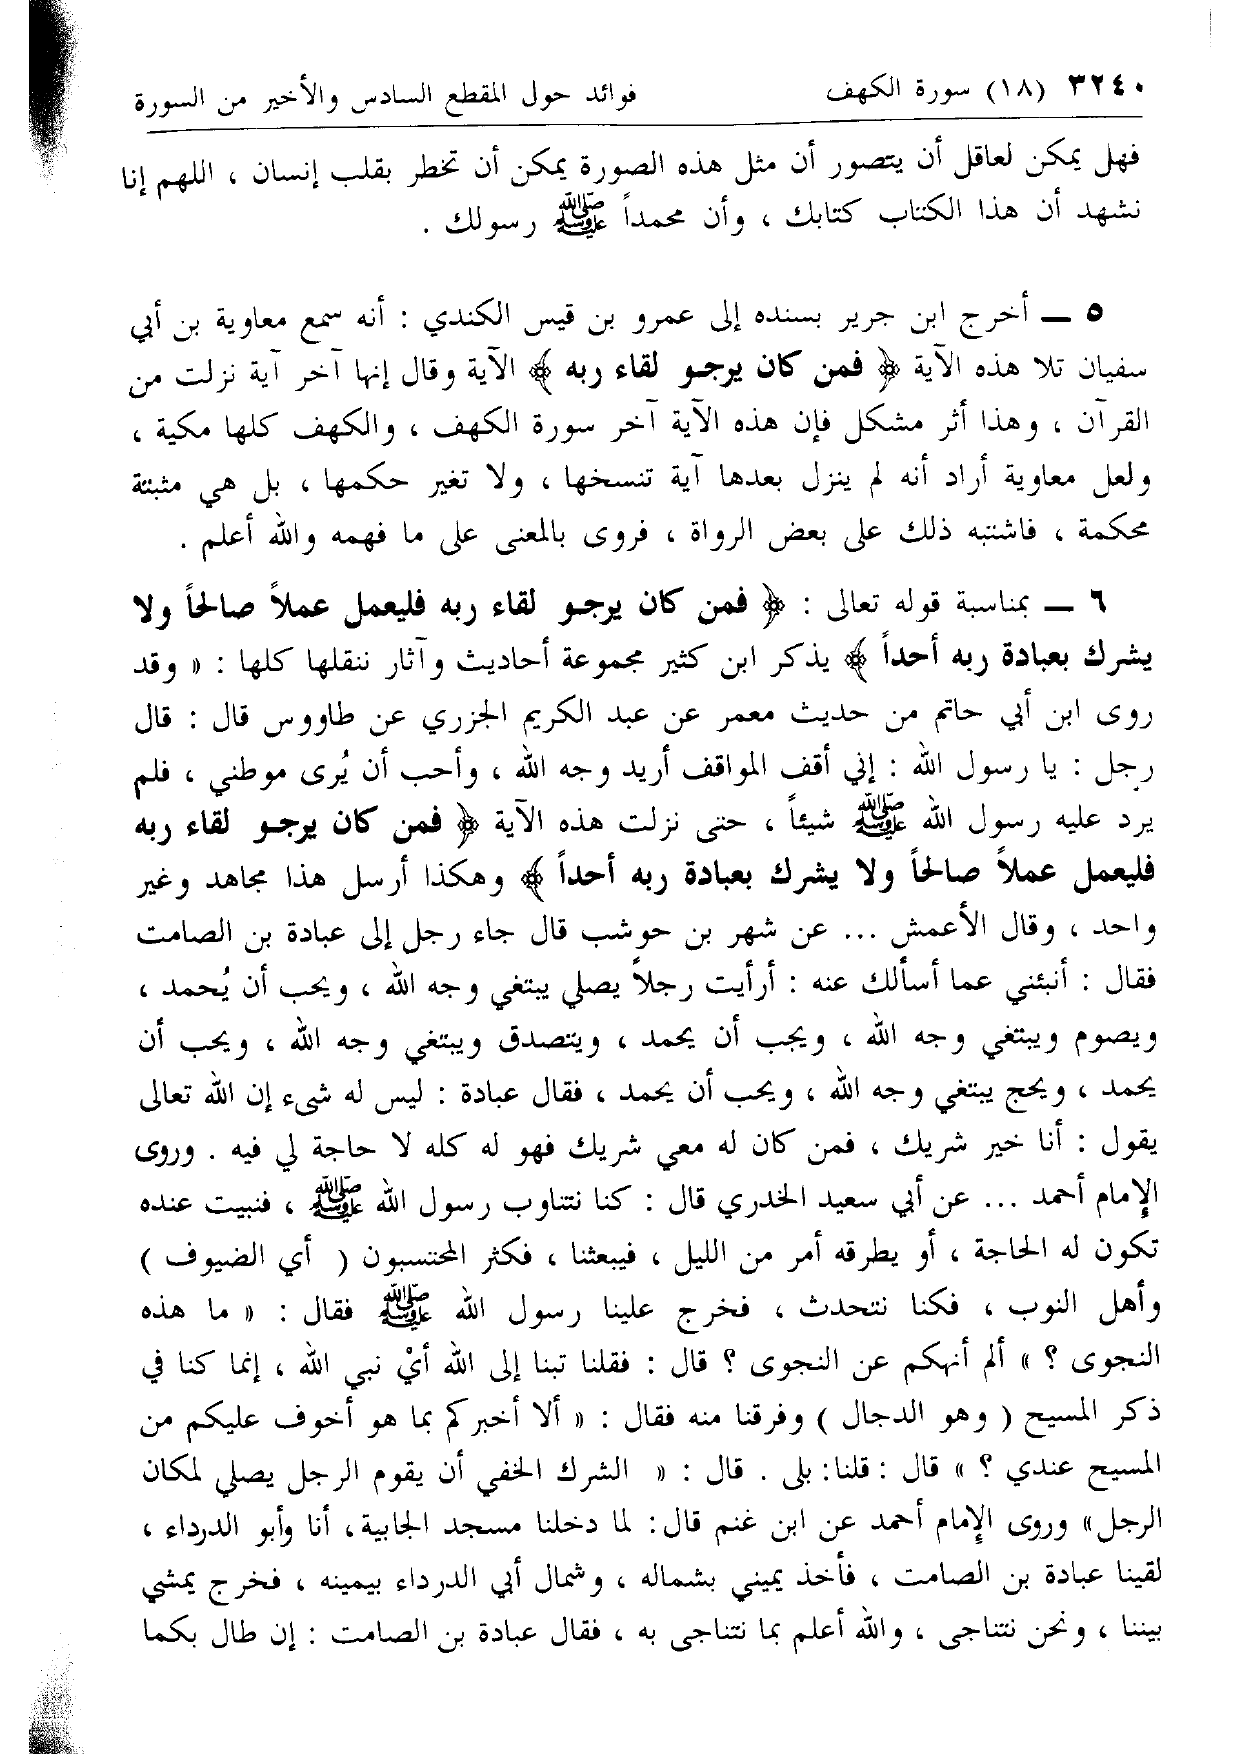 ٣٢٤٠ (١٨) سورة الكهف فوائد حول المقطع السادس والأخير من السورة
فهل يمكن لعاقل أن يتصور أن مثل هذه الصورة يمكن أن تخطر بقلب إنسان ، اللهم إنا
نشهد أن هذا الكتاب كتابك ، وأن محمداً ﷺ رسولك .
٥ ــ أخرج ابن جرير بسنده إلى عمرو بن قيس الكندي : أنه سمع معاوية بن أبي
سفيان تلا هذه الآية ﴿ فمن كان يرجو لقاء ربه ﴾ الآية وقال إنها آخر آية نزلت من
القرآن ، وهذا أثر مشكل فإن هذه الآية آخر سورة الكهف ، والكهف كلها مكية ،
ولعل معاوية أراد أنه لم ينزل بعدها آية تنسخها ، ولا تغير حكمها ، بل هي مثبتة
محكمة ، فاشتبه ذلك على بعض الرواة ، فروى بالمعنى على ما فهمه والله أعلم .
٦ ــ بمناسبة قوله تعالى : ﴿ فمن كان يرجو لقاء ربه فليعمل عملاً صالحاً ولا
يشرك بعبادة ربه أحداً ﴾ يذكر ابن كثير مجموعة أحاديث وآثار ننقلها كلها : « وقد
روى ابن أبي حاتم من حديث معمر عن عبد الكريم الجزري عن طاووس قال : قال
رجل : يا رسول الله : إني أقف المواقف أريد وجه الله ، وأحب أن يُرى موطني ، فلم
يرد عليه رسول الله ﷺ شيئاً ، حتى نزلت هذه الآية ﴿ فمن كان يرجو لقاء ربه
فليعمل عملاً صالحاً ولا يشرك بعبادة ربه أحداً ﴾ وهكذا أرسل هذا مجاهد وغير
واحد ، وقال الأعمش ... عن شهر بن حوشب قال جاء رجل إلى عبادة بن الصامت
فقال : أنبئني عما أسألك عنه : أرأيت رجلاً يصلي يبتغي وجه الله ، ويحب أن يُحمد ،
ويصوم ويبتغي وجه الله ، ويجب أن يحمد ، ويتصدق ويبتغي وجه الله ، ويحب أن
يحمد ، ويحج يبتغي وجه الله ، ويحب أن يحمد ، فقال عبادة : ليس له شىء إن الله تعالى
يقول : أنا خير شريك ، فمن كان له معي شريك فهو له كله لا حاجة لي فيه . وروى
الإمام أحمد ... عن أبي سعيد الخدري قال : كنا نتناوب رسول الله ﷺ ، فنبيت عنده
تكون له الحاجة ، أو يطرقه أمر من الليل ، فيبعثنا ، فكثر المحتسبون ( أي الضيوف )
وأهل النوب ، فكنا نتحدث ، فخرج علينا رسول الله ﷺ فقال : « ما هذه
النجوى ؟ » ألم أنهكم عن النجوى ؟ قال : فقلنا تبنا إلى الله أيْ نبي الله ، إنما كنا في
ذكر المسيح ( وهو الدجال ) وفرقنا منه فقال : « ألا أخبركم بما هو أخوف عليكم من
المسيح عندي ؟ » قال : قلنا: بلى . قال : « الشرك الخفي أن يقوم الرجل يصلي لمكان
الرجل» وروى الإمام أحمد عن ابن غنم قال: لما دخلنا مسجد الجابية، أنا وأبو الدرداء ،
لقينا عبادة بن الصامت ، فأخذ يميني بشماله ، وشمال أبي الدرداء بيمينه ، فخرج يمشي
بيننا ، ونحن نتناجى ، والله أعلم بما نتناجى به ، فقال عبادة بن الصامت : إن طال بكما